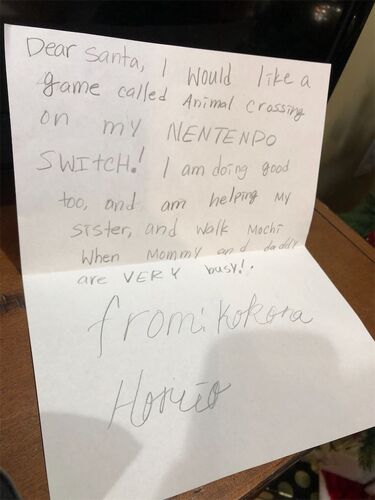 Dear Santa, I would like a
game called Animal Crossing
on my NENTENDO
SWITCH! I am doing good
too, and am helping my
sister, and walk Mochi
when Mommy and daddy
are VERY busy!.
from: Kokora